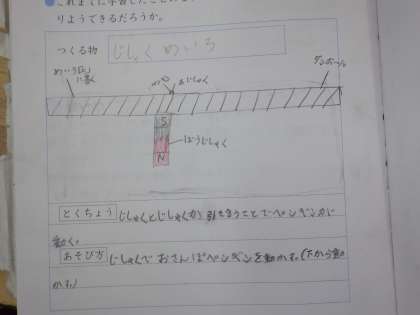 これまでに学習したことを
りようできるだろうか。
つくる物
じしゃくめいろ
めいろ
に置く
じしゃく
ダンボール
S
ぼうじしゃく
N
とくちょう じしゃくとじしゃくが引き合うことでペンギンが
動く。
あそび方 じしゃくでおさんぽペンギンを動かす。(下から動
かす。)